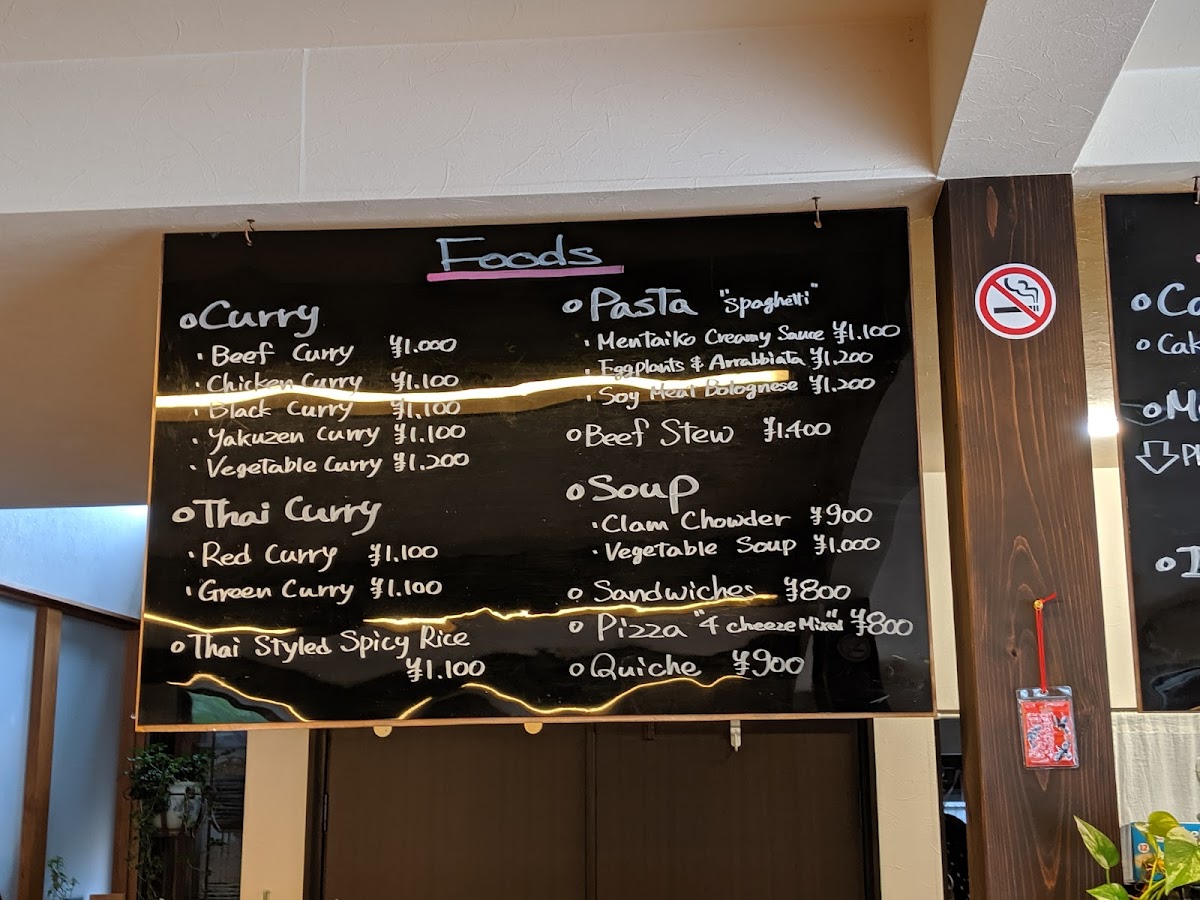 Foods
Curry
・Beef Curry ¥1.000
・Chicken Curry ¥1.100
・Black Curry ¥1.100
・Yakuzen Curry ¥1.100
・Vegetable Curry ¥1.200
Thai Curry
・Red Curry ¥1.100
・Green Curry ¥1.100
Thai Styled Spicy Rice
¥1.100
Pasta "Spaghetti"
・Mentaiko Creamy Sauce ¥1.100
・Eggplants & Arrabbiata ¥1.200
・Soy Meat Bolognese ¥1.200
Beef Stew ¥1.400
Soup
・Clam Chowder ¥900
・Vegetable Soup ¥1.000
Sandwiches ¥800
Pizza "4 cheeze Mixed" ¥800
Quiche ¥900